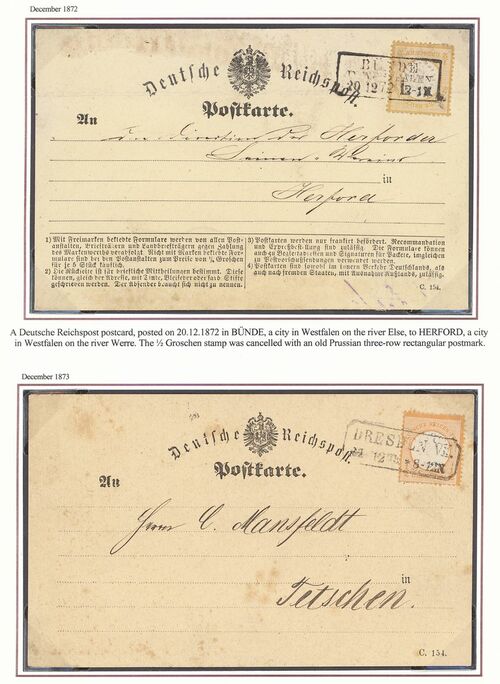 December 1872
Deutsche Reichspost.
Postkarte.
BÜNDE
WESTFALEN
20 12 72 12-1N
An
die Direction des Herforder
Vereins
in
Herford
1) Mit Freimarken beklebte Formulare werden von allen Post-
anstalten, Briefträgern und Landbriefträgern gegen Zahlung
des Markenwerths verabfolgt. Nicht mit Marken beklebte For-
mulare sind bei den Postanstalten zum Preise von ¼ Groschen
für je 5 Stück käuflich.
2) Die Rückseite ist für briefliche Mittheilungen bestimmt. Diese
können, gleich der Adresse, mit Dinte, Bleifeder oder farbigem Stifte
geschrieben werden. Der Absender braucht sich nicht zu nennen.
3) Postkarten werden nur frankirt befördert. Recommandation
und Expreßbestellung sind zulässig. Die Formulare können
auch zu Begleitadressen und Signaturen für Packete, imgleichen
zu Postvorschußsendungen verwendet werden.
4) Postkarten sind sowohl im innern Verkehr Deutschlands, als
auch nach fremden Staaten, mit den Marken anwendbar.
C. 154.
A Deutsche Reichspost postcard, posted on 20.12.1872 in BÜNDE, a city in Westfalen on the river Else, to HERFORD, a city
in Westfalen on the river Werre. The ½ Groschen stamp was cancelled with an old Prussian three-row rectangular postmark.
December 1873
Deutsche Reichspost.
Postkarte.
DRESDEN NEU
12 73 8-12N
An
Herrn C. Mansfeldt
in
Tetschen.
C. 154.